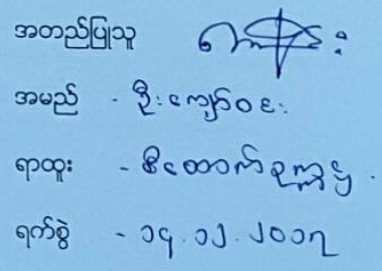 အတည်ပြုသူ
အမည် - ဦးကျော်ဝေး
ရာထူး - ဒီထောက်ဥက္ကဋ္ဌ.
ရက်စွဲ - ၁၄.၁၂.၂၀၁၇